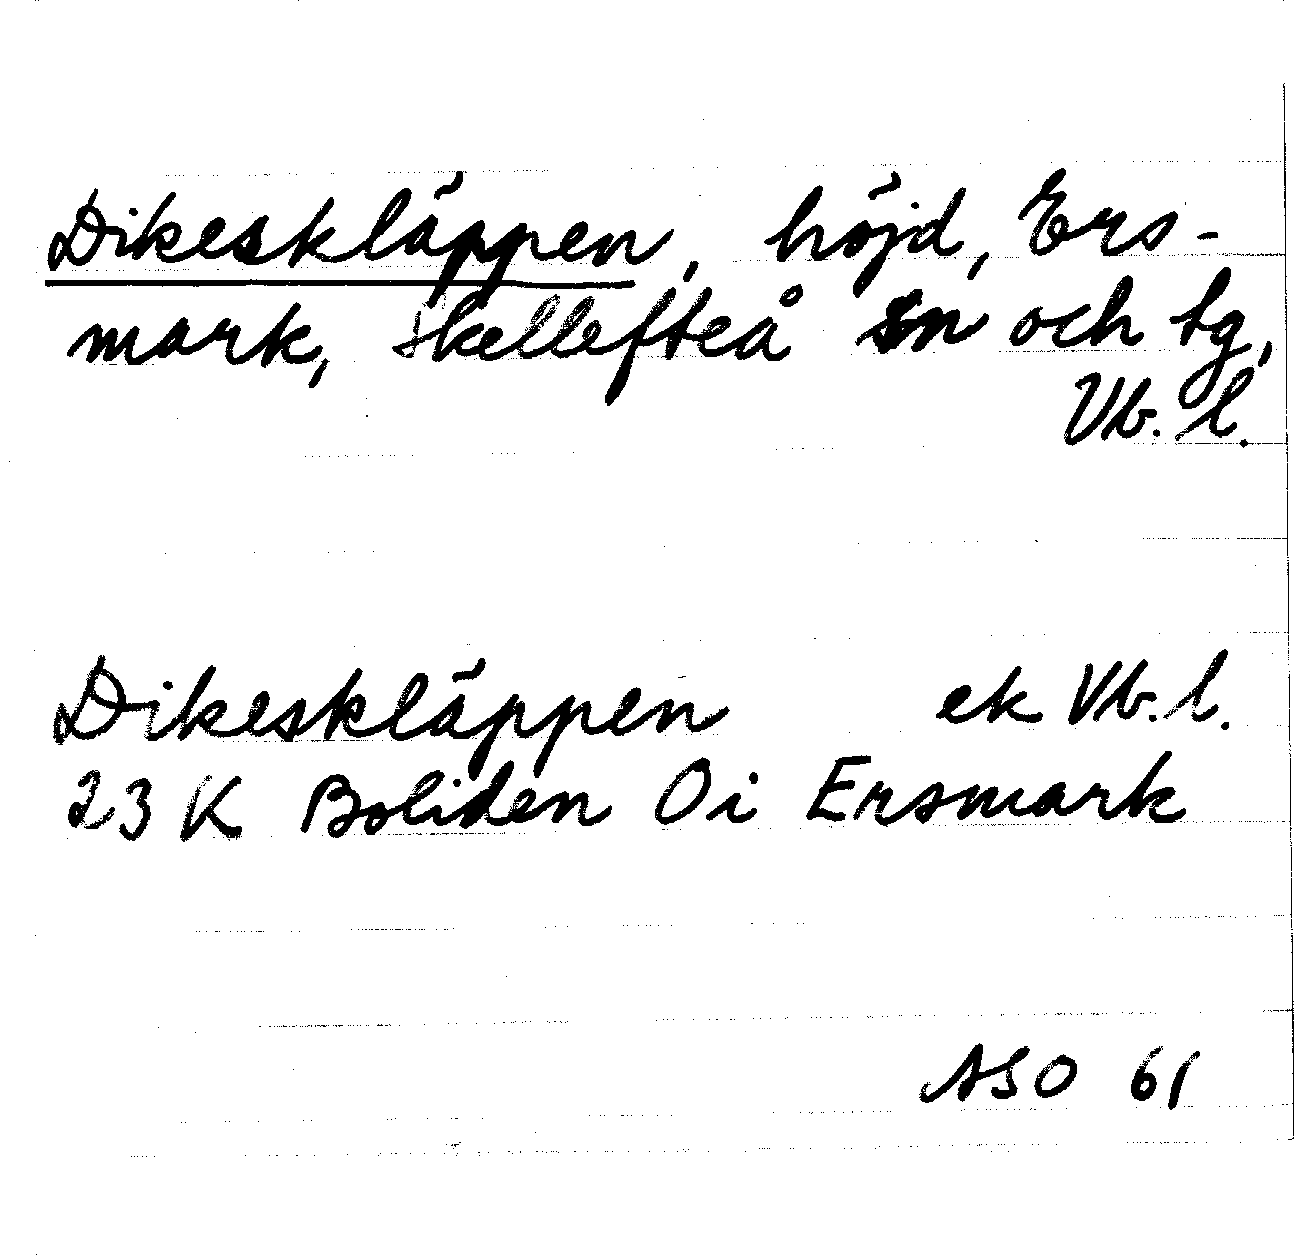 Dikeskläppen, höjd, Ers-
mark, Skellefteå sn och tg,
Vb. l.
Dikeskläppen ek Vb. l.
23 K Boliden Oi Ersmark
ASO 61